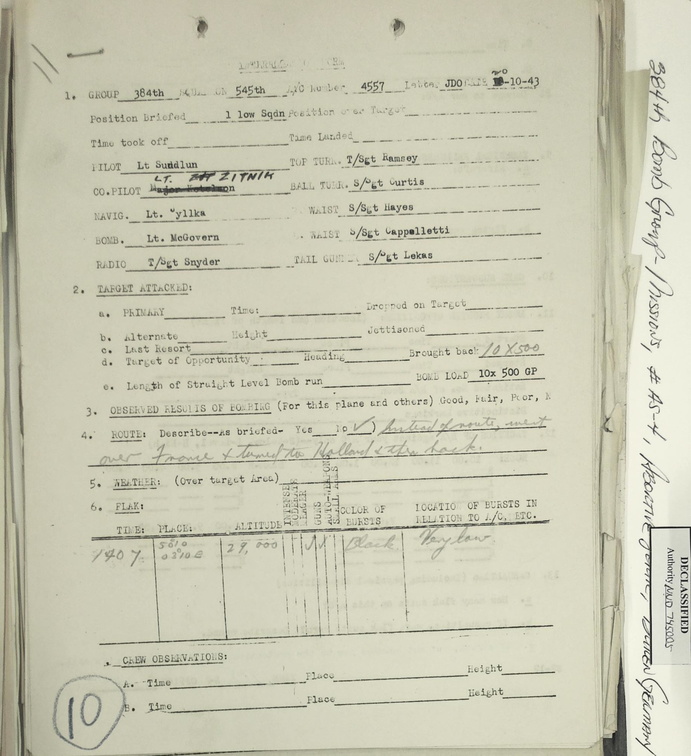 1. GROUP 384th SQUADRON 545th A/C Number 4557 Letter JDO DATE 20-10-43
Position Briefed 1 low Sqdn Position over Target
Time took off Time Landed
PILOT Lt Sundlun TOP TURR. T/Sgt Ramsey
LT. ZITNIK
CO.PILOT BALL TURR. S/Sgt Curtis
NAVIG. Lt. WAIST S/Sgt Hayes
BOMB. Lt. McGovern WAIST S/Sgt Cappelletti
RADIO T/Sgt Snyder TAIL GUNNER S/Sgt Lekas
2. TARGET ATTACKED:
a. PRIMARY Time: Dropped on Target
b. Alternate Height Jettisoned
c. Last Resort
d. Target of Opportunity Heading Brought back 10 X 500
e. Length of Straight Level Bomb run BOMB LOAD 10x 500 GP
3. OBSERVED RESULTS OF BOMBING (For this plane and others) Good, Fair, Poor, N
4. ROUTE: Describe--As briefed- Yes No ✓) Instead of route, went
over France & turned to Holland & then back.
5. WEATHER: (Over target Area)
6. FLAK:
TIME: PLACE: ALTITUDE INTENSE MODERATE GUNS COLOR OF BURSTS LOCATION OF BURSTS IN RELATION TO A/C, ETC.
1407 5010 0310E 29,000 ✓✓ Black Very low
CREW OBSERVATIONS:
A. Time Place Height
B. Time Place Height
10
384th Bomb Group - Missions, # AS-4, ABORTIVE Duren Germany
DECLASSIFIED
Authority NND 745005